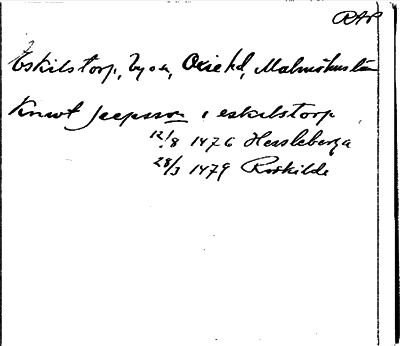 RAP
Eskilstorp, byn, Oxie hd, Malmöhus län
Knwt Jeepsson i eskilstorp
12/8 1476 Hessleberga
28/3 1479 Roskilde